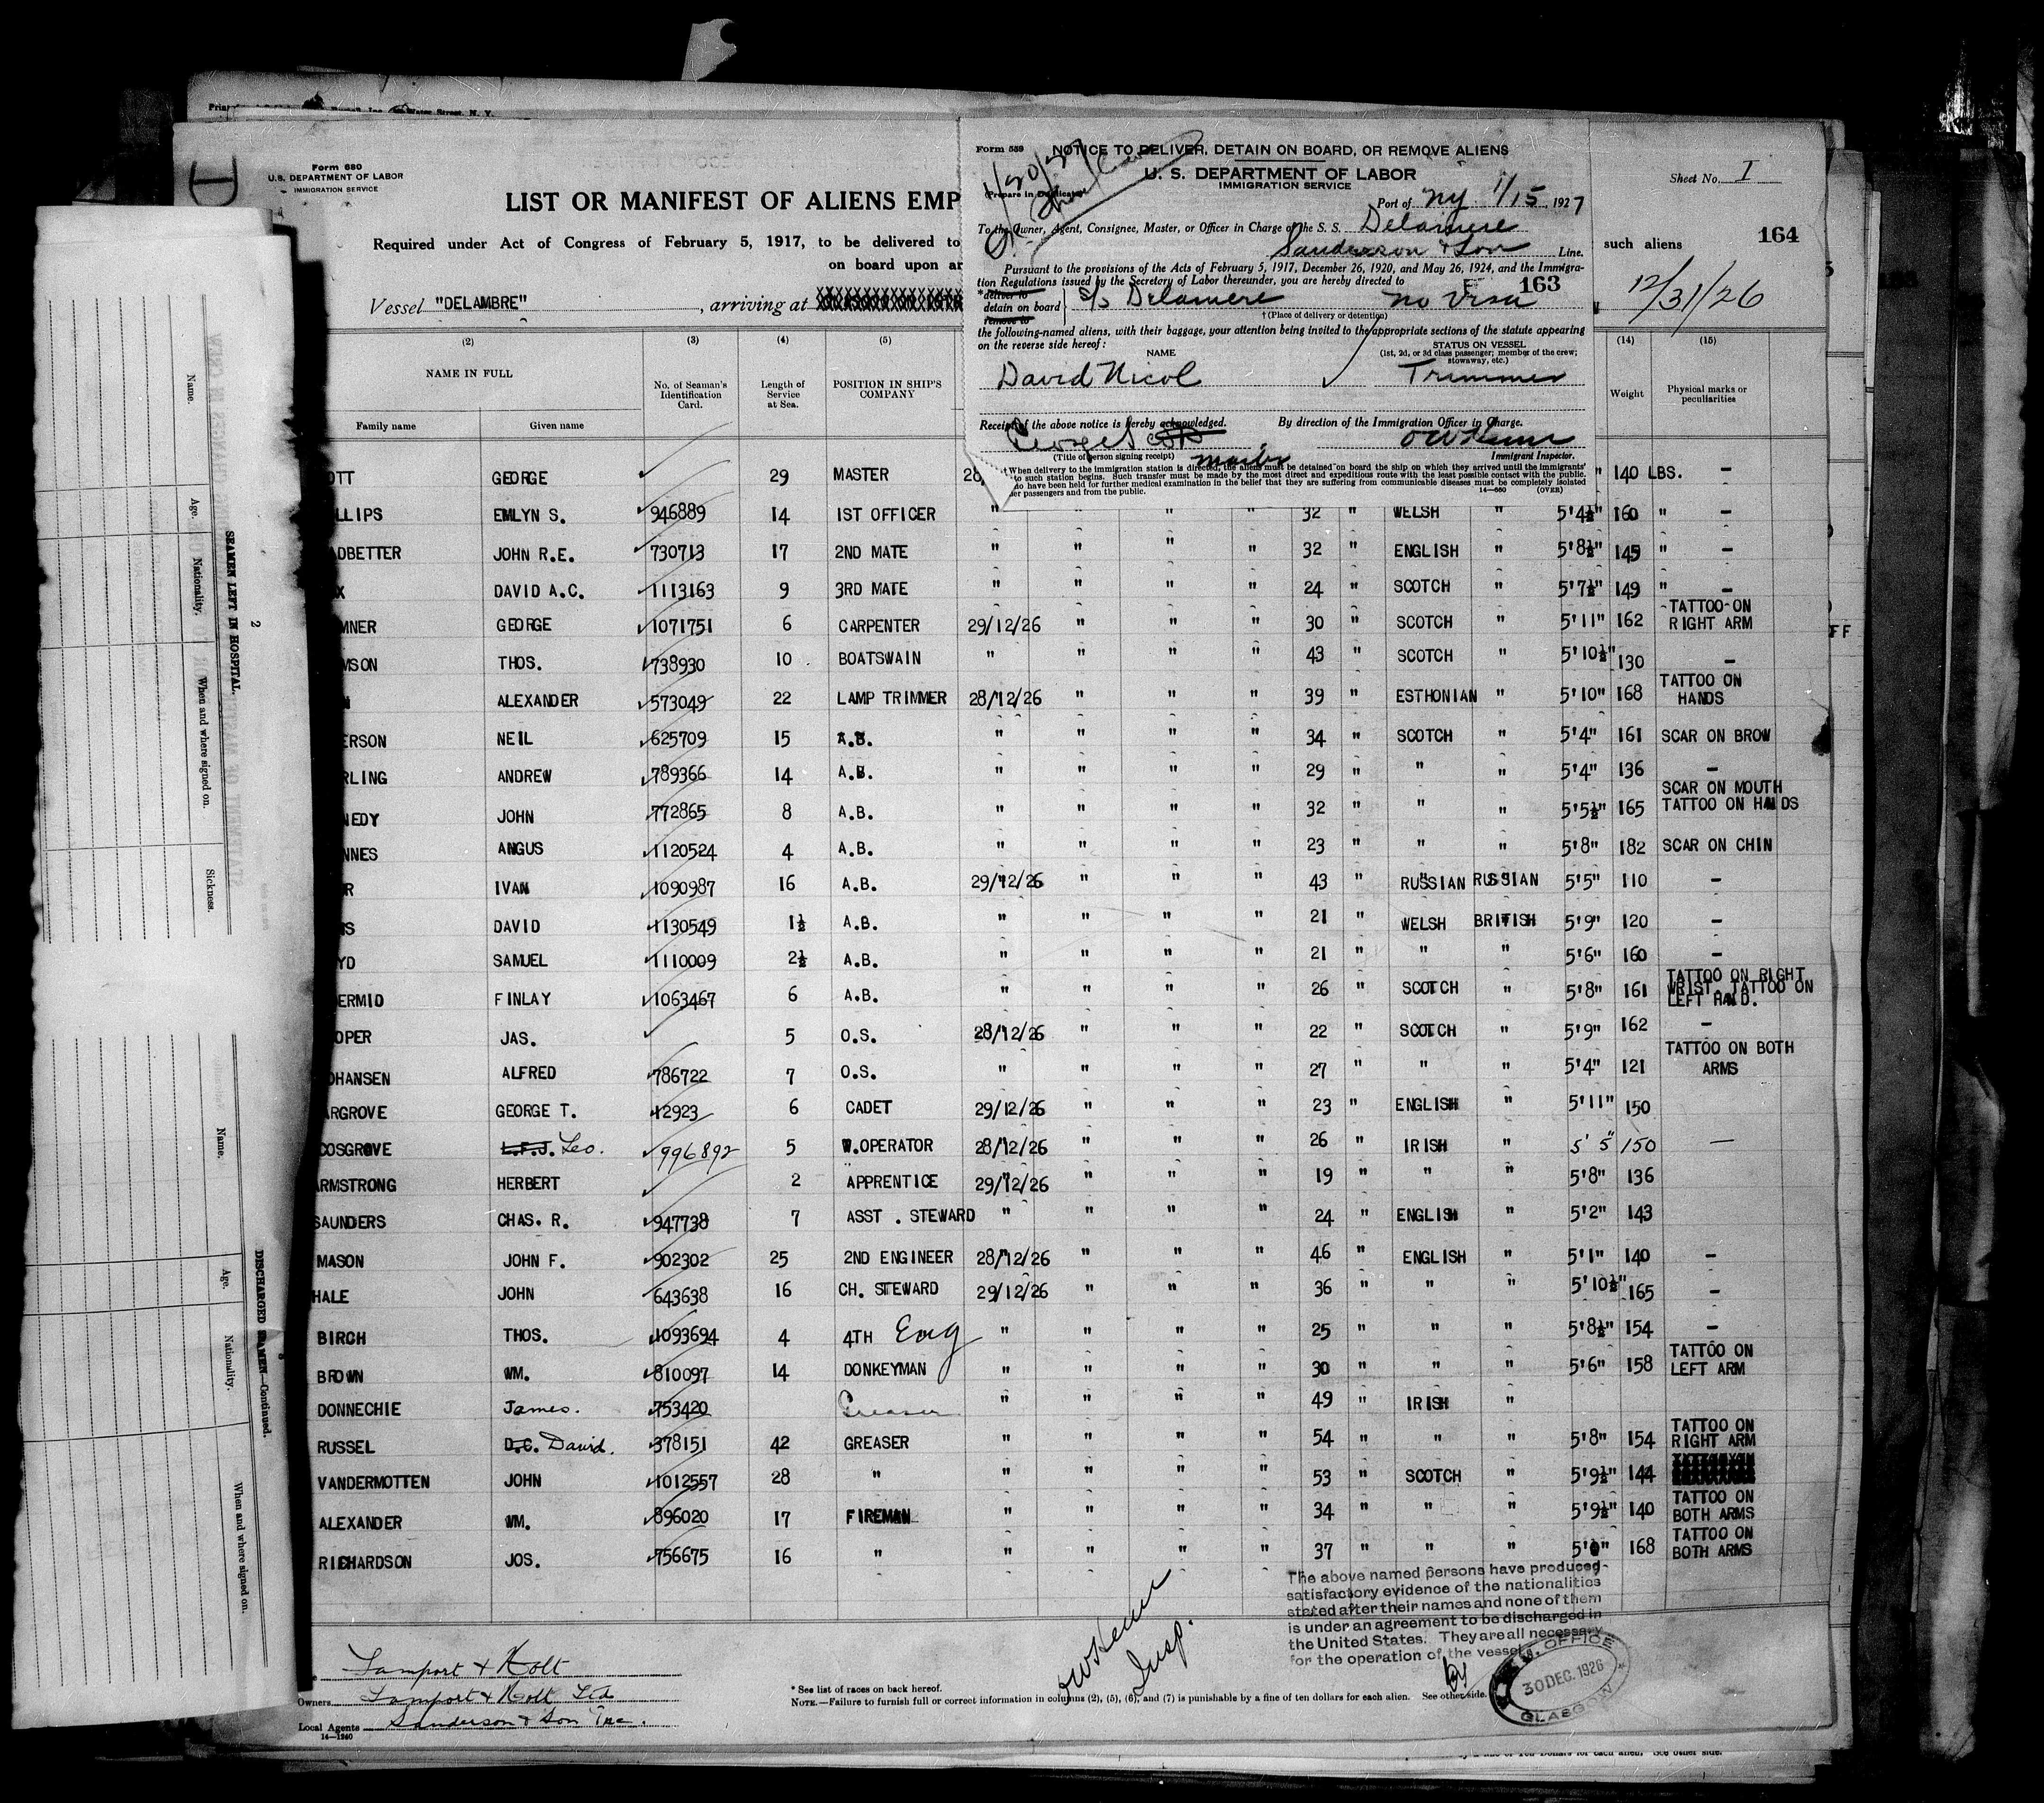 Form 680
U.S. DEPARTMENT OF LABOR
IMMIGRATION SERVICE
LIST OR MANIFEST OF ALIENS EMP
Required under Act of Congress of February 5, 1917, to be delivered to
on board upon ar
Vessel "DELAMBRE" , arriving at
Sheet No. I
such aliens
164
12/31/26
Form 559
NOTICE TO DELIVER, DETAIN ON BOARD, OR REMOVE ALIENS
Prepare in Duplicate
U. S. DEPARTMENT OF LABOR
IMMIGRATION SERVICE
Port of NY 1/15, 1927
To the Owner, Agent, Consignee, Master, or Officer in Charge of the S. S. Delamere
Sanderson & Son Line.
Pursuant to the provisions of the Acts of February 5, 1917, December 26, 1920, and May 26, 1924, and the Immigra-
tion Regulations issued by the Secretary of Labor thereunder, you are hereby directed to
163
*deliver to
detain on board
remove to
S/S Delamere no visa
†(Place of delivery or detention)
the following-named aliens, with their baggage, your attention being invited to the appropriate sections of the statute appearing
on the reverse side hereof:
NAME
STATUS ON VESSEL
(1st, 2d, or 3d class passenger; member of the crew;
stowaway, etc.)
David Nicol Trimmer
Receipt of the above notice is hereby acknowledged. By direction of the Immigration Officer in Charge.
George Scott
(Title of person signing receipt) master
Immigrant Inspector.
When delivery to the immigration station is directed, the aliens must be detained on board the ship on which they arrived until the immigrants'
to such station begins. Such transfer must be made by the most direct and expeditious route with the least possible contact with the public.
ho have been held for further medical examination in the belief that they are suffering from communicable diseases must be completely isolated
er passengers and from the public. 14—660 (OVER)
(2) (3) (4) (5) (14) (15)
NAME IN FULL
No. of Seaman's Identification Card.
Length of Service at Sea.
POSITION IN SHIP'S COMPANY
Weight
Physical marks or peculiarities
Family name Given name
OTT GEORGE 29 MASTER 28 " 140 LBS. -
LLIPS EMLYN S. 946889 14 1ST OFFICER " " " " 32 " WELSH " 5'4½" 160 " -
ADBETTER JOHN R.E. 730713 17 2ND MATE " " " " 32 " ENGLISH " 5'8½" 145 " -
X DAVID A.C. 1113163 9 3RD MATE " " " " 24 " SCOTCH " 5'7½" 149 " -
MNER GEORGE 1071751 6 CARPENTER 29/12/26 " " " 30 " SCOTCH " 5'11" 162 TATTOO ON RIGHT ARM
MSON THOS. 738930 10 BOATSWAIN " " " " 43 " SCOTCH " 5'10½" 130 -
N ALEXANDER 573049 22 LAMP TRIMMER 28/12/26 " " " 39 " ESTHONIAN " 5'10" 168 TATTOO ON HANDS
ERSON NEIL 625709 15 A.B. " " " " 34 " SCOTCH " 5'4" 161 SCAR ON BROW
RLING ANDREW 789366 14 A.B. " " " " 29 " " " 5'4" 136 -
NEDY JOHN 772865 8 A.B. " " " " 32 " " " 5'5½" 165 SCAR ON MOUTH TATTOO ON HANDS
NNES ANGUS 1120524 4 A.B. " " " " 23 " " " 5'8" 182 SCAR ON CHIN
R IVAN 1090987 16 A.B. 29/12/26 " " " 43 " RUSSIAN RUSSIAN 5'5" 110 -
NS DAVID 1130549 1½ A.B. " " " " 21 " WELSH BRITISH 5'9" 120 -
YD SAMUEL 1110009 2½ A.B. " " " " 21 " " " 5'6" 160 -
ERMID FINLAY 1063467 6 A.B. " " " " 26 " SCOTCH " 5'8" 161 TATTOO ON RIGHT WRIST. TATTOO ON LEFT HAND.
OPER JAS. 5 O.S. 28/12/26 " " " 22 " SCOTCH " 5'9" 162 -
OHANSEN ALFRED 786722 7 O.S. " " " " 27 " " " 5'4" 121 TATTOO ON BOTH ARMS
ARGROVE GEORGE T. 12923 6 CADET 29/12/26 " " " 23 " ENGLISH " 5'11" 150
COSGROVE L.F.J. Leo. 996892 5 W.OPERATOR 28/12/26 " " " 26 " IRISH " 5' 5" 150 -
ARMSTRONG HERBERT 2 APPRENTICE 29/12/26 " " " 19 " " " 5'8" 136
SAUNDERS CHAS. R. 947738 7 ASST . STEWARD " " " " 24 " ENGLISH " 5'2" 143
MASON JOHN F. 902302 25 2ND ENGINEER 28/12/26 " " " 46 " ENGLISH " 5'1" 140 -
HALE JOHN 643638 16 CH. STEWARD 29/12/26 " " " 36 " " " 5'10½" 165 -
BIRCH THOS. 1093694 4 4TH Eng " " " " 25 " " " 5'8½" 154 -
BROWN WM. 810097 14 DONKEYMAN " " " " 30 " " " 5'6" 158 TATTOO ON LEFT ARM
DONNECHIE James. 753420 Greaser " " " " 49 " IRISH "
RUSSEL D.C. David. 378151 42 GREASER " " " " 54 " " " 5'8" 154 TATTOO ON RIGHT ARM
VANDERMOTTEN JOHN 1012557 28 " " " " " 53 " SCOTCH " 5'9½" 144
ALEXANDER WM. 896020 17 FIREMAN " " " " 34 " " " 5'9½" 140 TATTOO ON BOTH ARMS
RICHARDSON JOS. 756675 16 " " " " " 37 " " " 168 TATTOO ON BOTH ARMS
The above named persons have produced
satisfactory evidence of the nationalities
stated after their names and none of them
is under an agreement to be discharged in
the United States. They are all necessary
for the operation of the vessels.
OFFICE
30 DEC. 1926
GLASGOW
Insp.
Lamport & Holt
Owners Lamport & Holt Ltd
Local Agents Sanderson & Son Inc.
14—1240
* See list of races on back hereof.
NOTE.—Failure to furnish full or correct information in columns (2), (5), (6), and (7) is punishable by a fine of ten dollars for each alien. See other side.
2
SEAMEN LEFT IN HOSPITAL.
Name. Age. Nationality. When and where signed on. Sickness.
DISCHARGED SEAMEN—Continued.
Name. Age. Nationality. When and where signed on.